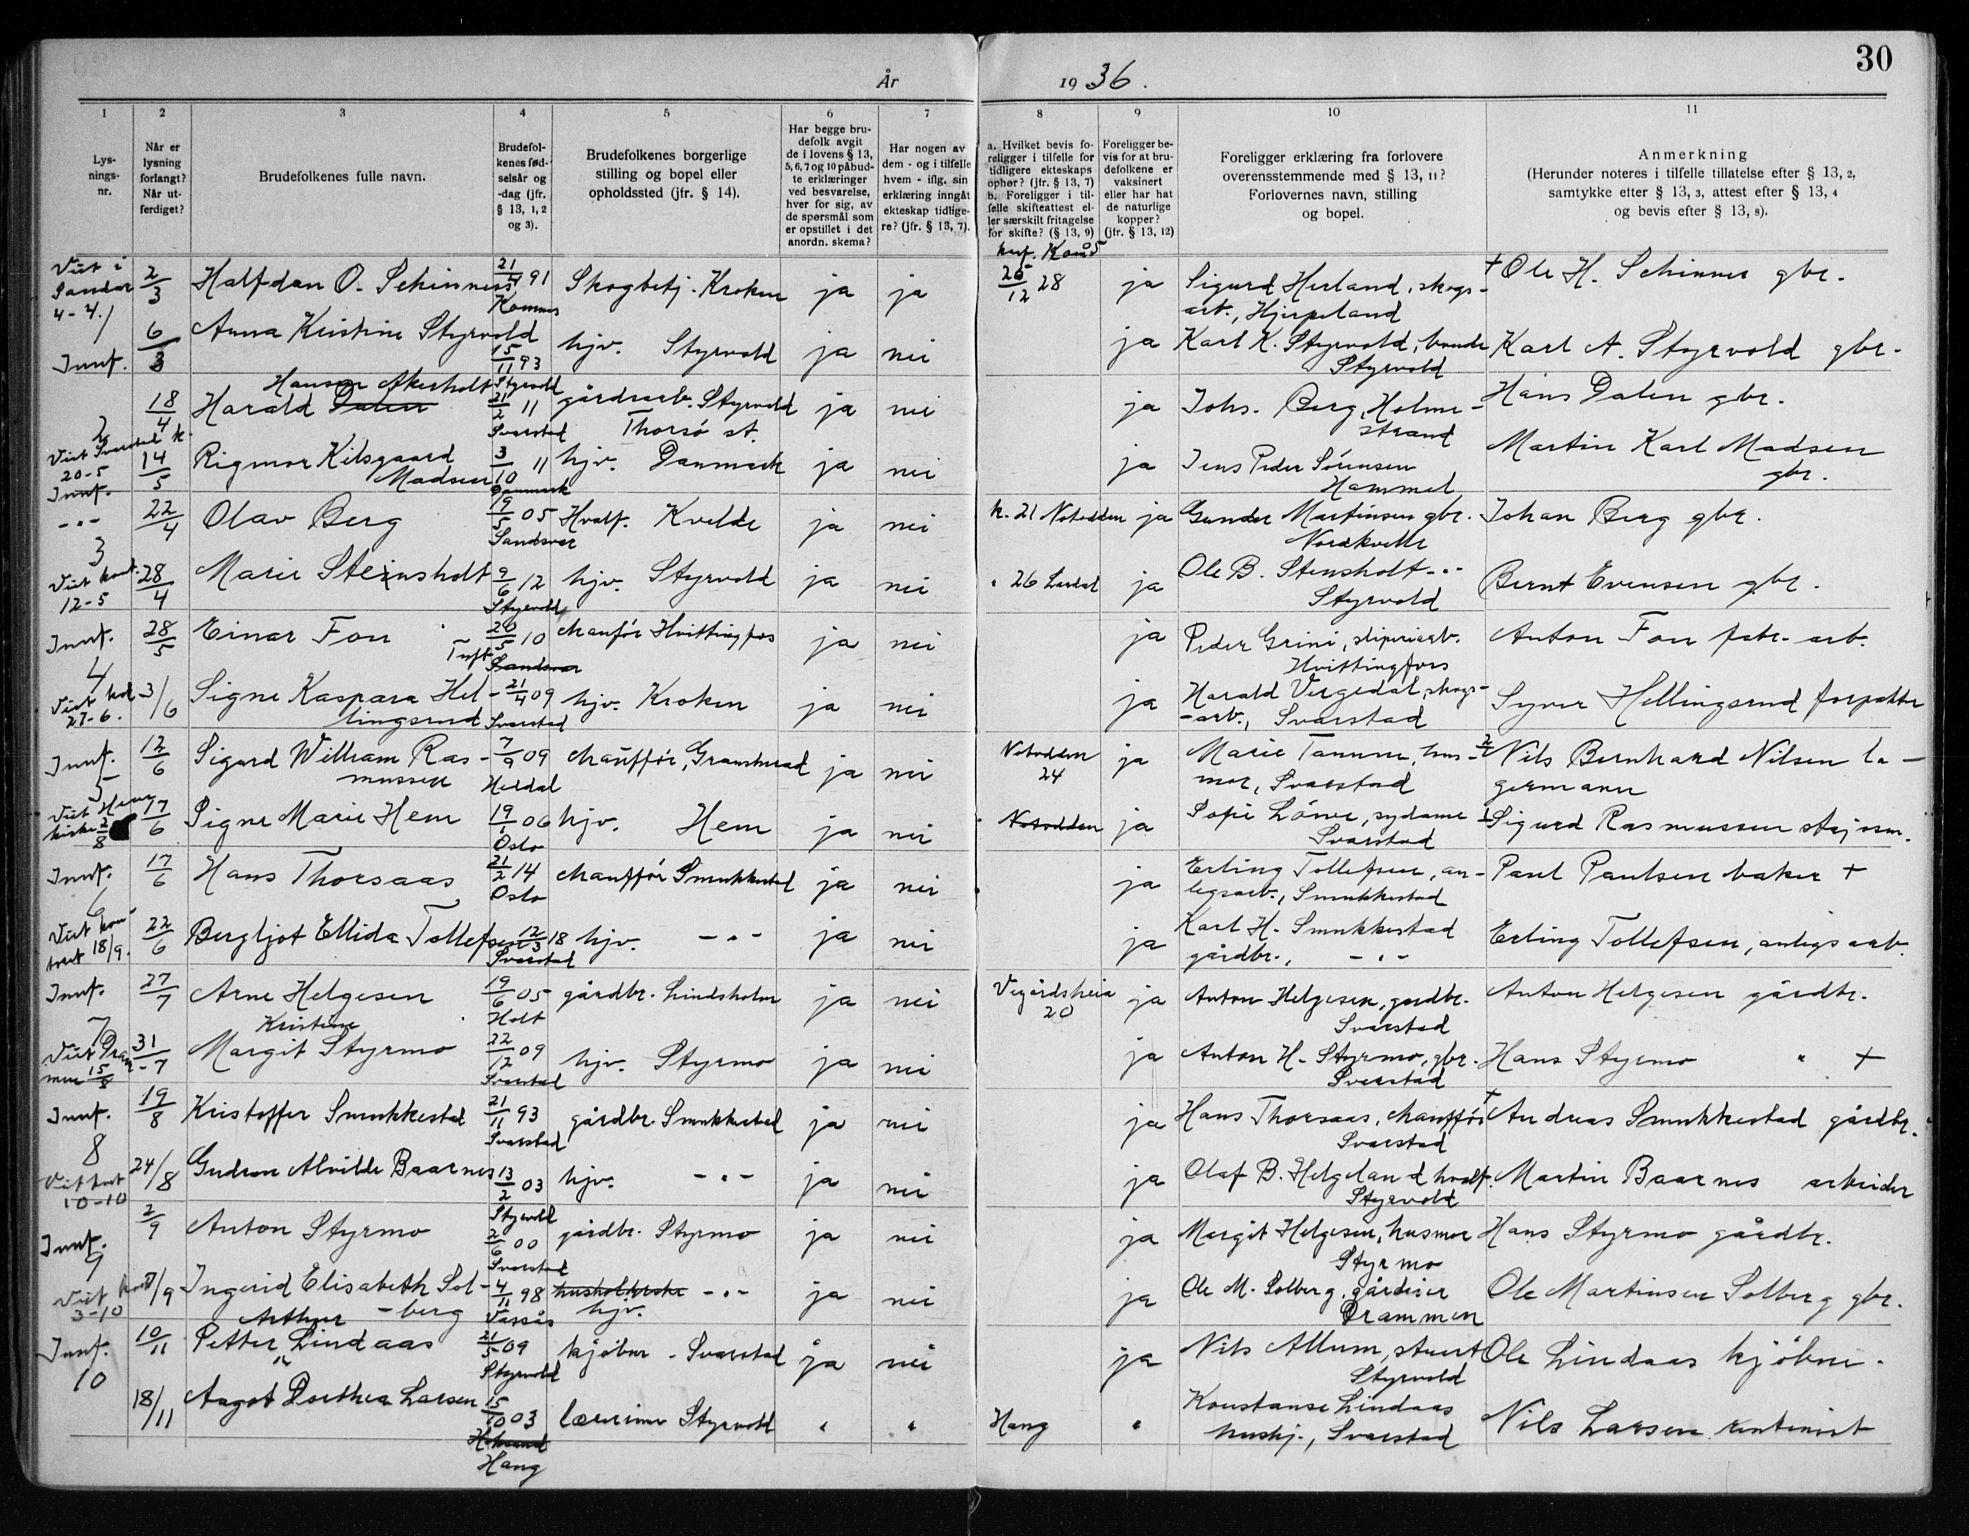 30
År 1936.
1 2 3 4 5 6 7 8 9 10 11
Lys-
nings-
nr.
Når er
lysning
forlangt?
Når ut-
ferdiget?
Brudefolkenes fulle navn.
Brudefol-
kenes fød-
selsår og
-dag (jfr.
§ 13, 1, 2
og 3).
Brudefolkenes borgerlige
stilling og bopel eller
opholdssted (jfr. § 14).
Har begge bru-
defolk avgit
de i lovens § 13,
5, 6, 7 og 10 påbud-
te erklæringer
ved besvarelse,
hver for sig, av
de spørsmål som
er opstillet i det
anordn. skema?
Har nogen av
dem - og i tilfelle
hvem - iflg. sin
erklæring inngåt
ekteskap tidlige-
re? (jfr. § 13, 7).
a. Hvilket bevis fo-
religger i tilfelle for
tidligere ekteskaps
ophør? (jfr. § 13, 7)
b. Foreligger i til-
felle skifteattest el-
ler særskilt fritagelse
for skifte? (§ 13, 9)
Foreligger be-
vis for at bru-
defolkene er
vaksinert
eller har hat
de naturlige
kopper?
(jfr. § 13, 12)
Foreligger erklæring fra forlovere
overensstemmende med § 13, 11?
Forlovernes navn, stilling
og bopel.
Anmerkning
(Herunder noteres i tilfelle tillatelse efter § 13, 2,
samtykke efter § 13, 3, attest efter § 13, 4
og bevis efter § 13, 8).
Viet i Sandar 4-4. 2/3 Halfdan O. Schinnes 21/4 91 Skogbetj. Kroken ja ja 26/12 28 ja Sigurd Herland, skogs- † Ole H. Schinnes gbr.
arb., Hjerpeland
1 Innf. 6/3 Anna Kristine Styrvold 15/11 93 Styrvold hjv. Styrvold ja nei ja Karl K. Styrvold, bonde Karl A. Styrvold gbr.
Styrvold
Hansen Akerholt
18/4 Harald Dalen 21/2 11 Svarstad gårdsarb. Styrvold ja nei ja Johs. Berg, Holme- Hans Dalen gbr.
Thorsö st. strand
2 Viet Svarstad k. 20-5 14/5 Rigmor Kilsgaard 3/10 11 Danmark hjv. Danmark ja nei ja Jens Peder Sörensen Martin Karl Madsen
Innf. Madsen Hammel gbr.
-"- 22/4 Olav Berg 9/5 05 Sandsver Hvalf. Kvelde ja nei k. 21 Notodden ja Gunder Martinsen gbr. Johan Berg gbr.
Nordkvelle
3 Viet kont. 12-5 28/4 Marie Steinsholt 9/6 12 Styrvold hjv. Styrvold ja nei " 26 Lardal ja Ole B. Stensholt -"- Bernt Evensen gbr.
Styrvold
Innf. 28/5 Einar Fon 20/5 10 Tuft Sandsver chauför Hvittingfos ja nei ja Peder Grini, sliperiarb. Anton Fon fabr. arb.
Hvittingfoss
4 27-6. 3/6 Signe Kaspara Hel- 21/4 09 Svarstad hjv. Kroken ja nei ja Harald Vergedal, skogs- Syver Hellingsrud forpakter
lingsrud -arb., Svarstad
Innf. 12/6 Sigurd William Ras- 7/9 09 chaufför, ja nei Notodden 24 ja Marie Tamme, hus- Nils Bernhard Nilsen la-
mussen mor, Svarstad germann
5 Viet Hem kirke 2/8 17/6 Signe Marie Hem 19/1 06 Oslo hjv. Hem ja nei Notodden ja Sydame Sigurd Rasmussen
Svarstad
Innf. 17/6 Hans Thorsaas 21/2 14 Oslo chauffør Smukkestad ja nei ja Erling Tollefsen, an- Paul Paulsen baker +
legsarb., Smukkestad
6 Viet kon- toret 18/9. 22/6 Bergljot Ellida Tollefsen 12/3 18 Svarstad hjv. -"- ja nei ja Karl H. Smukkestad Erling Tollefsen, anlegsarb.
gårdbr., -"-
Innf. 27/7 Arne Helgesen 19/6 05 Holt gårdbr. Lindsholm ja nei Vegårdsheia 20 ja Anton Helgesen, gårdbr. Anton Helgesen gårdbr.
Svarstad
Kristine
7 Viet Dram- men 15/8 31/7 Margit Styrmo 22/12 09 Svarstad hjv. Styrmo ja nei ja Anton H. Styrmo, gbr. Hans Styrmo " +
Svarstad
Innf. 19/8 Kristoffer Smukkestad 21/11 93 Svarstad gårdbr. Smukkestad ja nei ja Hans Thorsaas, chauffør † Andreas Smukkestad gårdbr.
Svarstad
8 10-10 24/8 Gudrun Alvilde Baarnes 13/2 03 Styrvold hjv. -"- ja nei ja Olaf B. Helgeland hvalf. Martin Baarnes arbeider
Styrvold
Innf. 2/9 Anton Styrmo 2/6 00 Svarstad gårdbr. Styrmo ja nei ja Margit Helgesen, husmor Hans Styrmo gårdbr.
Styrmo
9 Viet kont 3-10 7/9 Ingerid Elisabeth Sol- 4/11 98 Vassås husholderske -"- ja nei ja Ole M. Solberg, gårdeier Ole Martinsen Solberg gbr.
-berg hjv. Drammen
Arthur
Innf. 10/11 Petter Lindaas 21/5 09 Styrvold kjøbm. Svarstad ja nei ja Nils Allum, stuert Ole Lindaas kjöbm.
Styrvold
10 18/11 Aagot Dorthea Larsen 15/10 03 Haug lærerinne Styrvold " " Haug " Konstanse Lindaas Nils Larsen rentenist
hushj., Svarstad